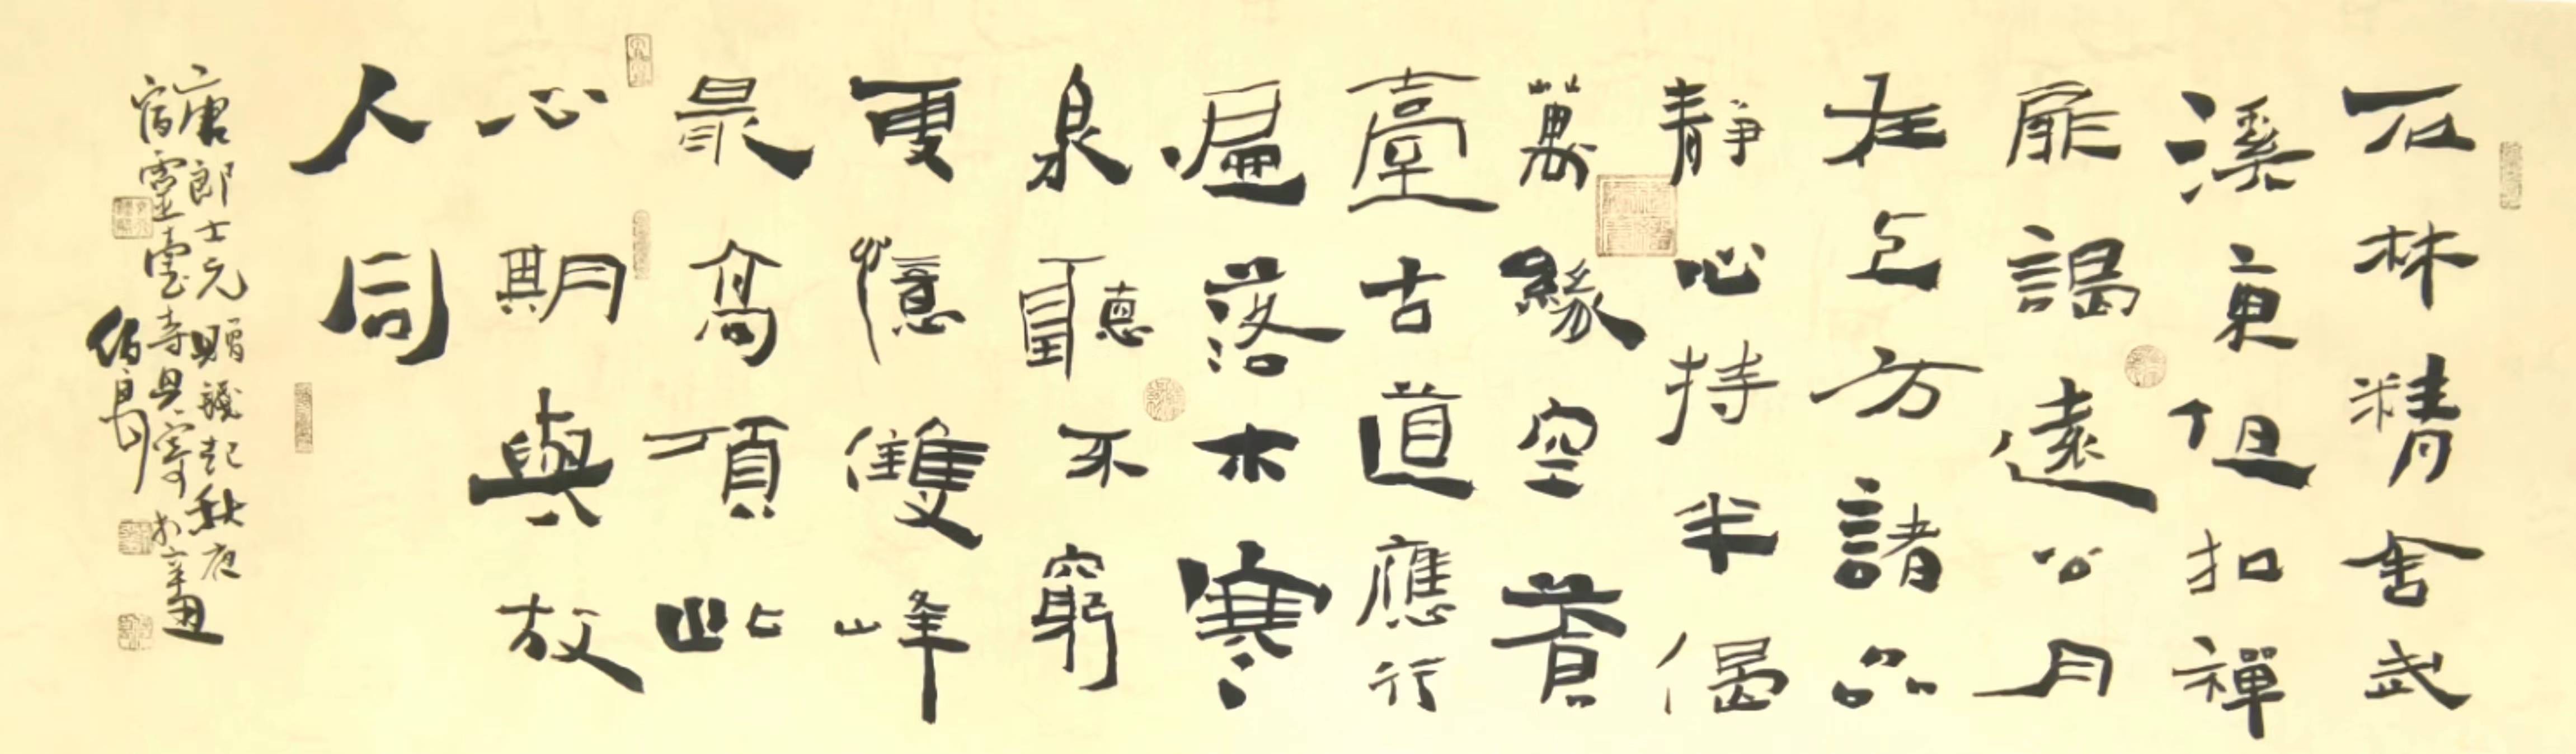 石林精舍武
溪東但扣禪
扉謁遠公月
在上方諸品
靜心持半偈
萬緣空蒼
臺古道應行
遍落木寒
泉聽不窮
更憶雙峰
最高頂此
心期與故
人同
唐郎士元贈錢起秋夜
宿靈臺寺見寄